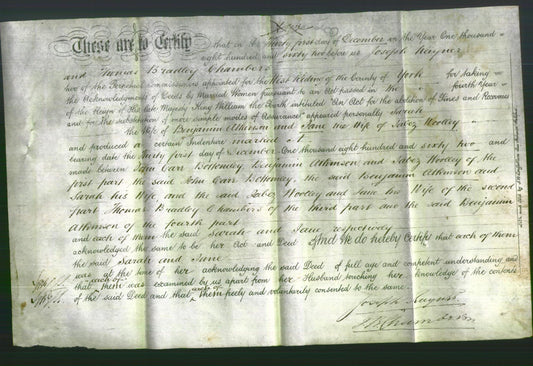 These are to Certify that on the Thirty first day of December in the Year One thousand
eight hundred and sixty two before us Joseph
and Thomas Bradley Chambers
two of the Perpetual Commissioners appointed for the West Riding of the County of York for taking
the Acknowledgments of Deeds by Married Women pursuant to an Act passed in the fourth Year
of the Reign of His late Majesty King William the Fourth intituled "An Act for the abolition of Fines and Recoveries
and for the substitution of more simple modes of Assurance" appeared personally Sarah
the Wife of Benjamin Atkinson and Jane the Wife of Jabez Woolley
and produced a certain Indenture marked A
bearing date the Thirty first day of December One thousand eight hundred and sixty two and
made between John Carr Bottomley, Benjamin Atkinson and Jabez Woolley of the
first part the said John Carr Bottomley, the said Benjamin Atkinson and
Sarah his Wife, and the said Jabez Woolley and Jane his Wife of the second
part Thomas Bradley Chambers of the third part and the said Benjamin
Atkinson of the fourth part
and each of them the said Sarah and Jane respectively
acknowledged the same to be her Act and Deed And We do hereby Certify that each of them
the said Sarah and Jane
was at the time of her acknowledging the said Deed of full age and competent understanding and
that each of them was examined by us apart from her Husband touching her knowledge of the contents
of the said Deed and that each of them freely and voluntarily consented to the same.
Joseph
T B Chambers